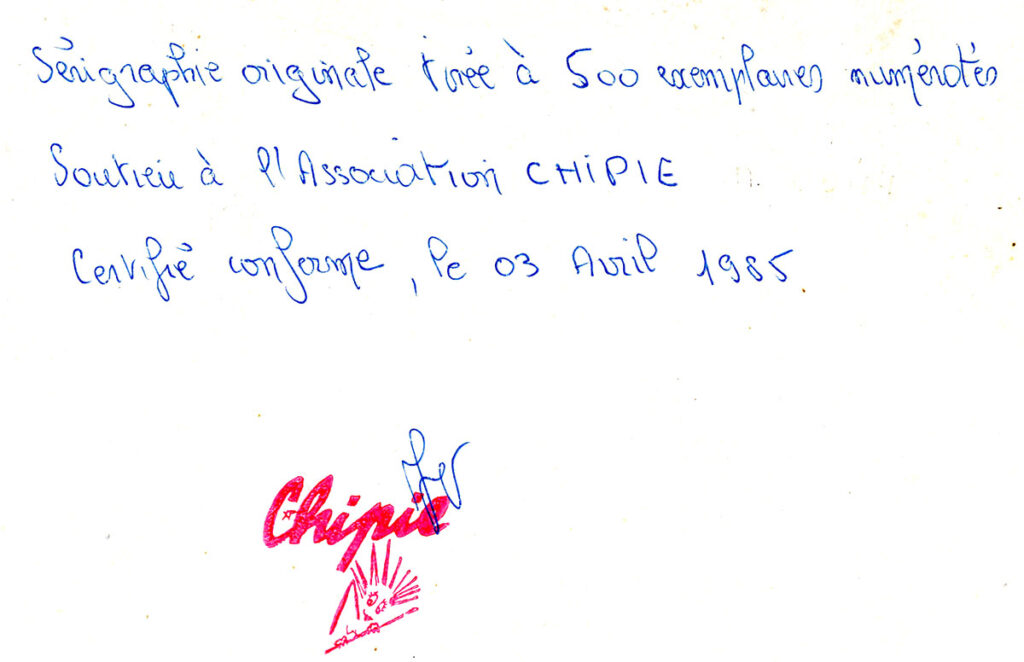 Sérigraphie originale tirée à 500 exemplaires numérotés
Soutien à l'Association CHIPIE
Certifié conforme, le 03 Avril 1985
Chipie